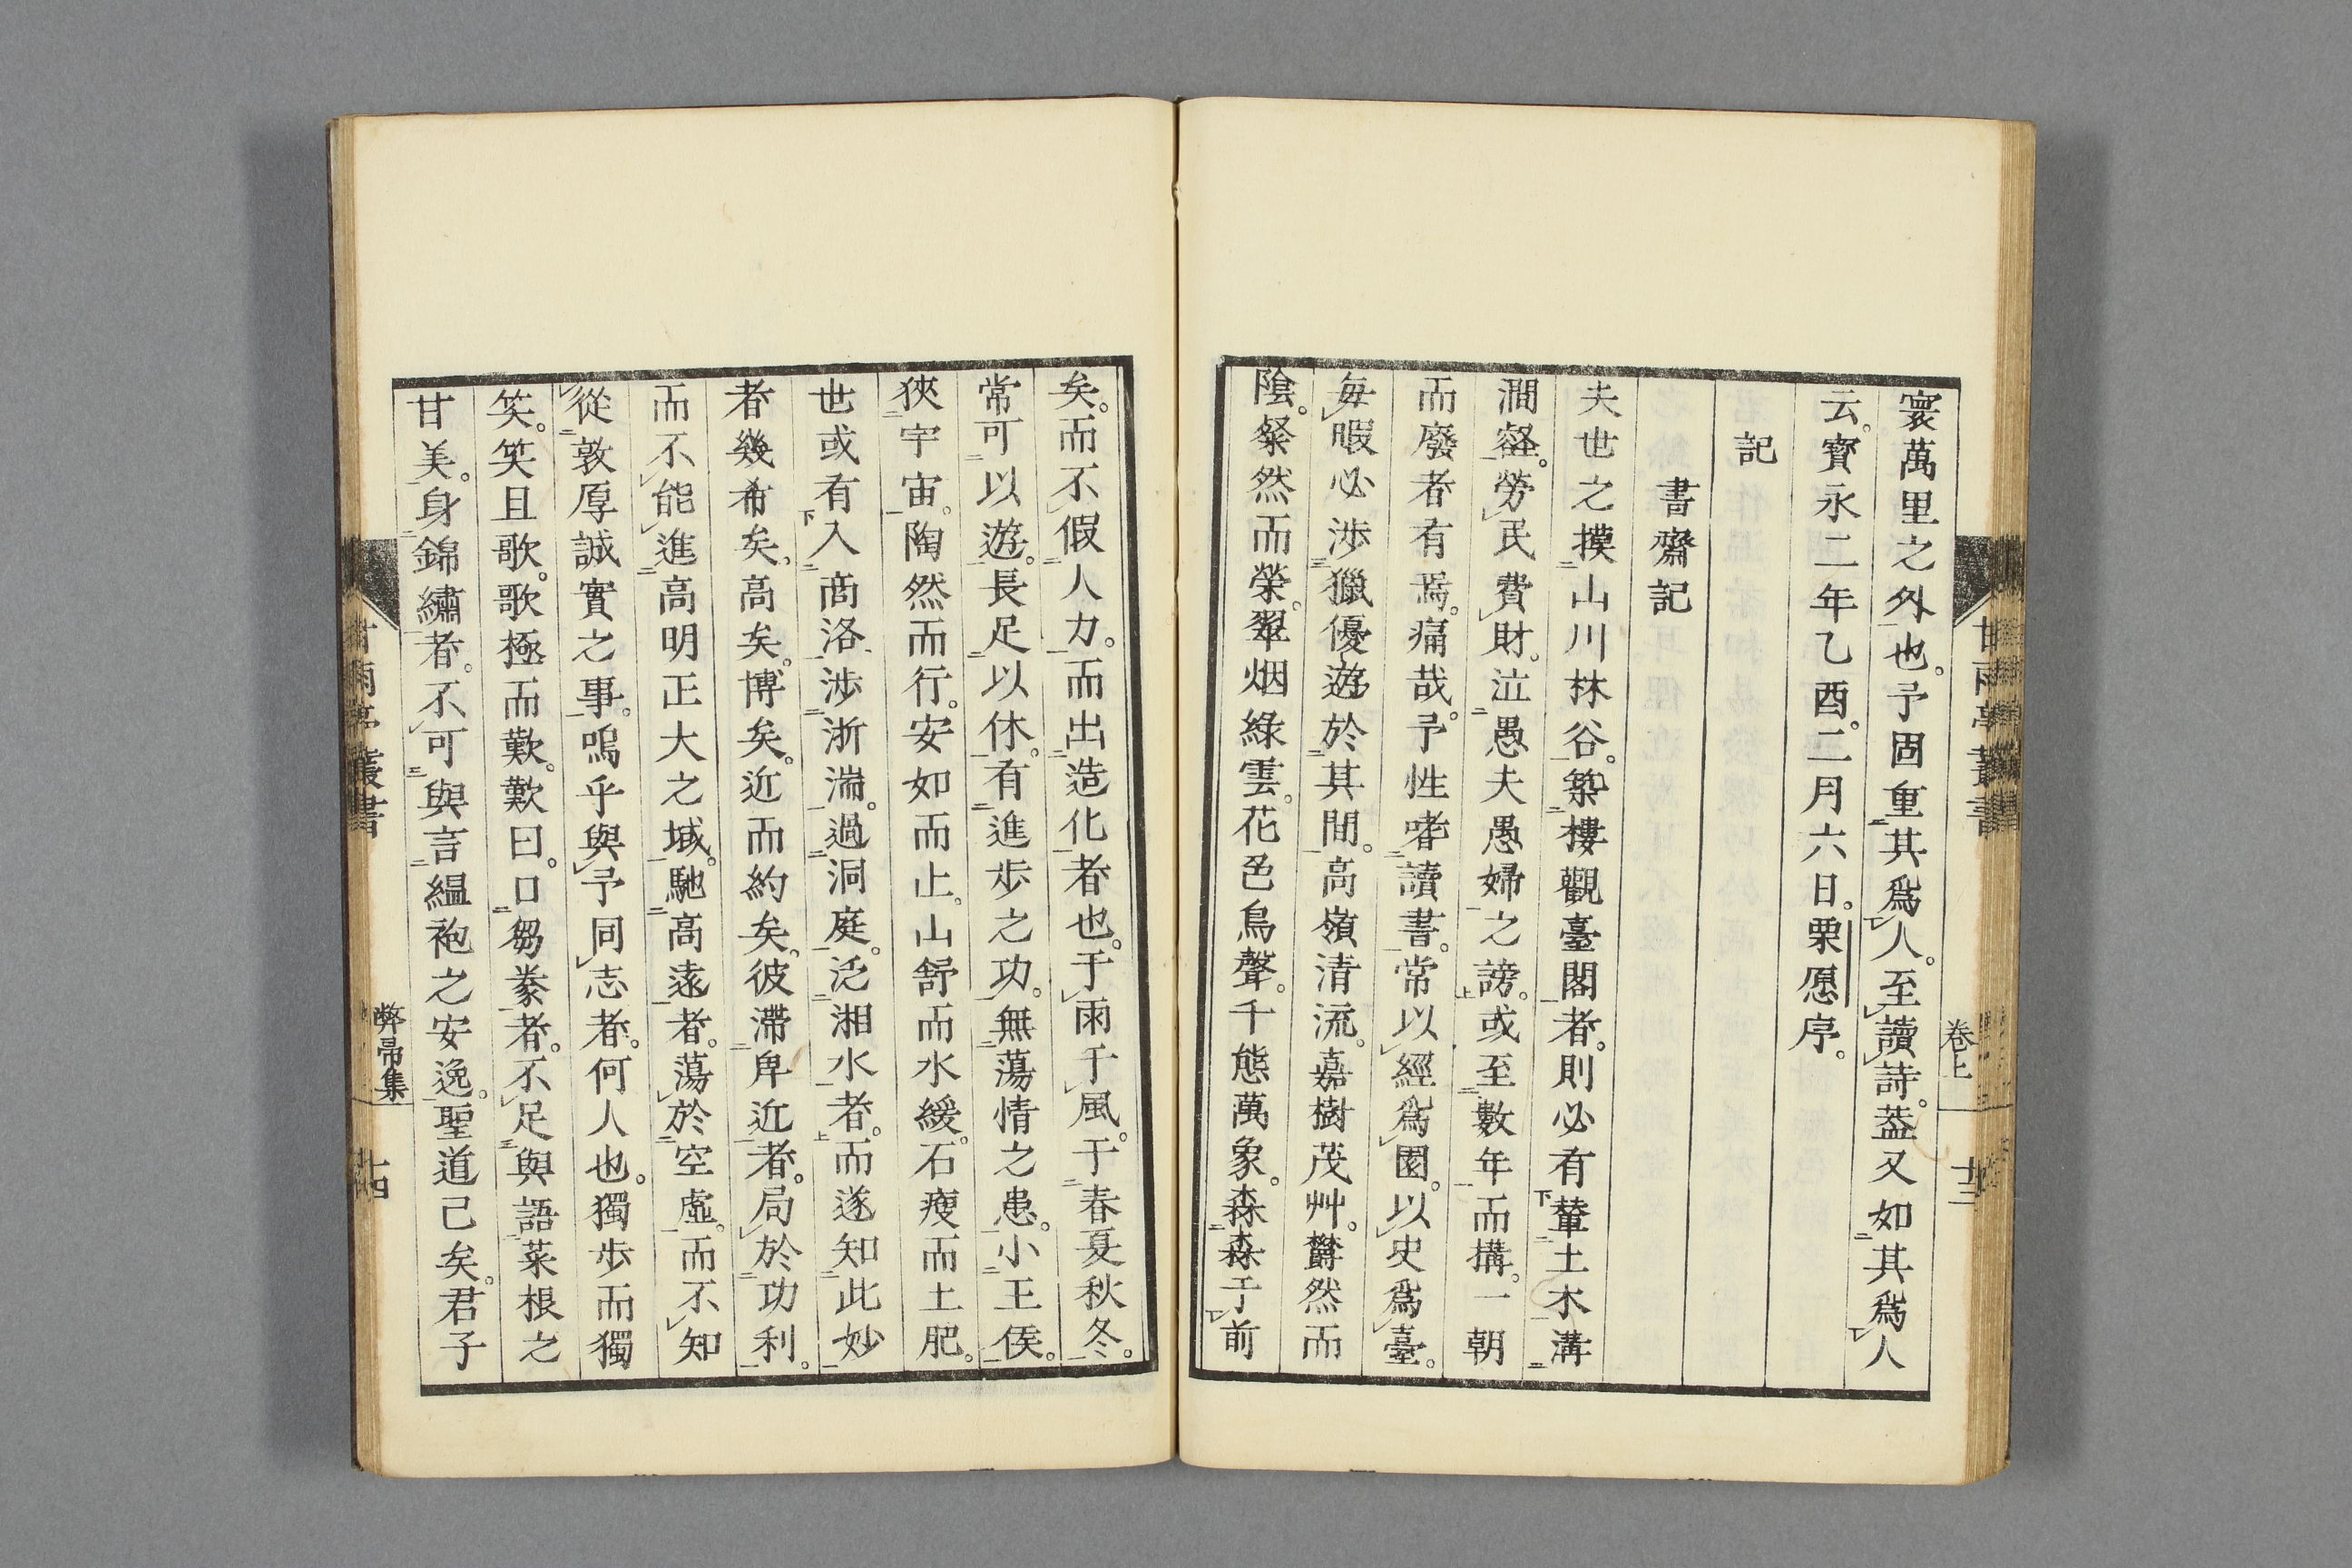 寰萬里之外也。予固重其爲人。至讀詩。葢又如其爲人
云。寳永二年乙酉。二月六日。栗愿序。
記
書齋記
夫世之摸山川林谷。築樓觀臺閣者。則必有輦土木溝
澗壑。勞民費財。泣愚夫愚婦之謗。或至數年而搆。一朝
而廢者有焉。痛哉。予性嗜讀書。常以經爲園。以史爲臺。
每暇必渉獵優遊於其間。高嶺清流。嘉樹茂艸。欝然而
陰。粲然而榮。翠烟綠雲。花色鳥聲。千態萬象。森森于前
矣。而不假人力。而出造化者也。于雨于風。于春夏秋冬。
常可以遊。長足以休。有進歩之功。無蕩情之患。小王侯。
狹宇宙。陶然而行。安如而止。山舒而水緩。石瘦而土肥。
世或有入商洛渉浙湍。過洞庭。泛湘水者。而遂知此妙
者幾希矣。高矣。博矣。近而約矣。彼滯卑近者。局於功利。
而不能進高明正大之域。馳高遠者。蕩於空虛。而不知
從敦厚誠實之事。嗚乎與予同志者。何人也。獨歩而獨
笑。笑且歌。歌極而歎。歎曰。口芻豢者。不足與語菜根之
甘美。身錦繡者。不可與言縕袍之安逸。聖道已矣。君子
甘雨亭叢書
卷上
十三
甘雨亭叢書
弊帚集
十四